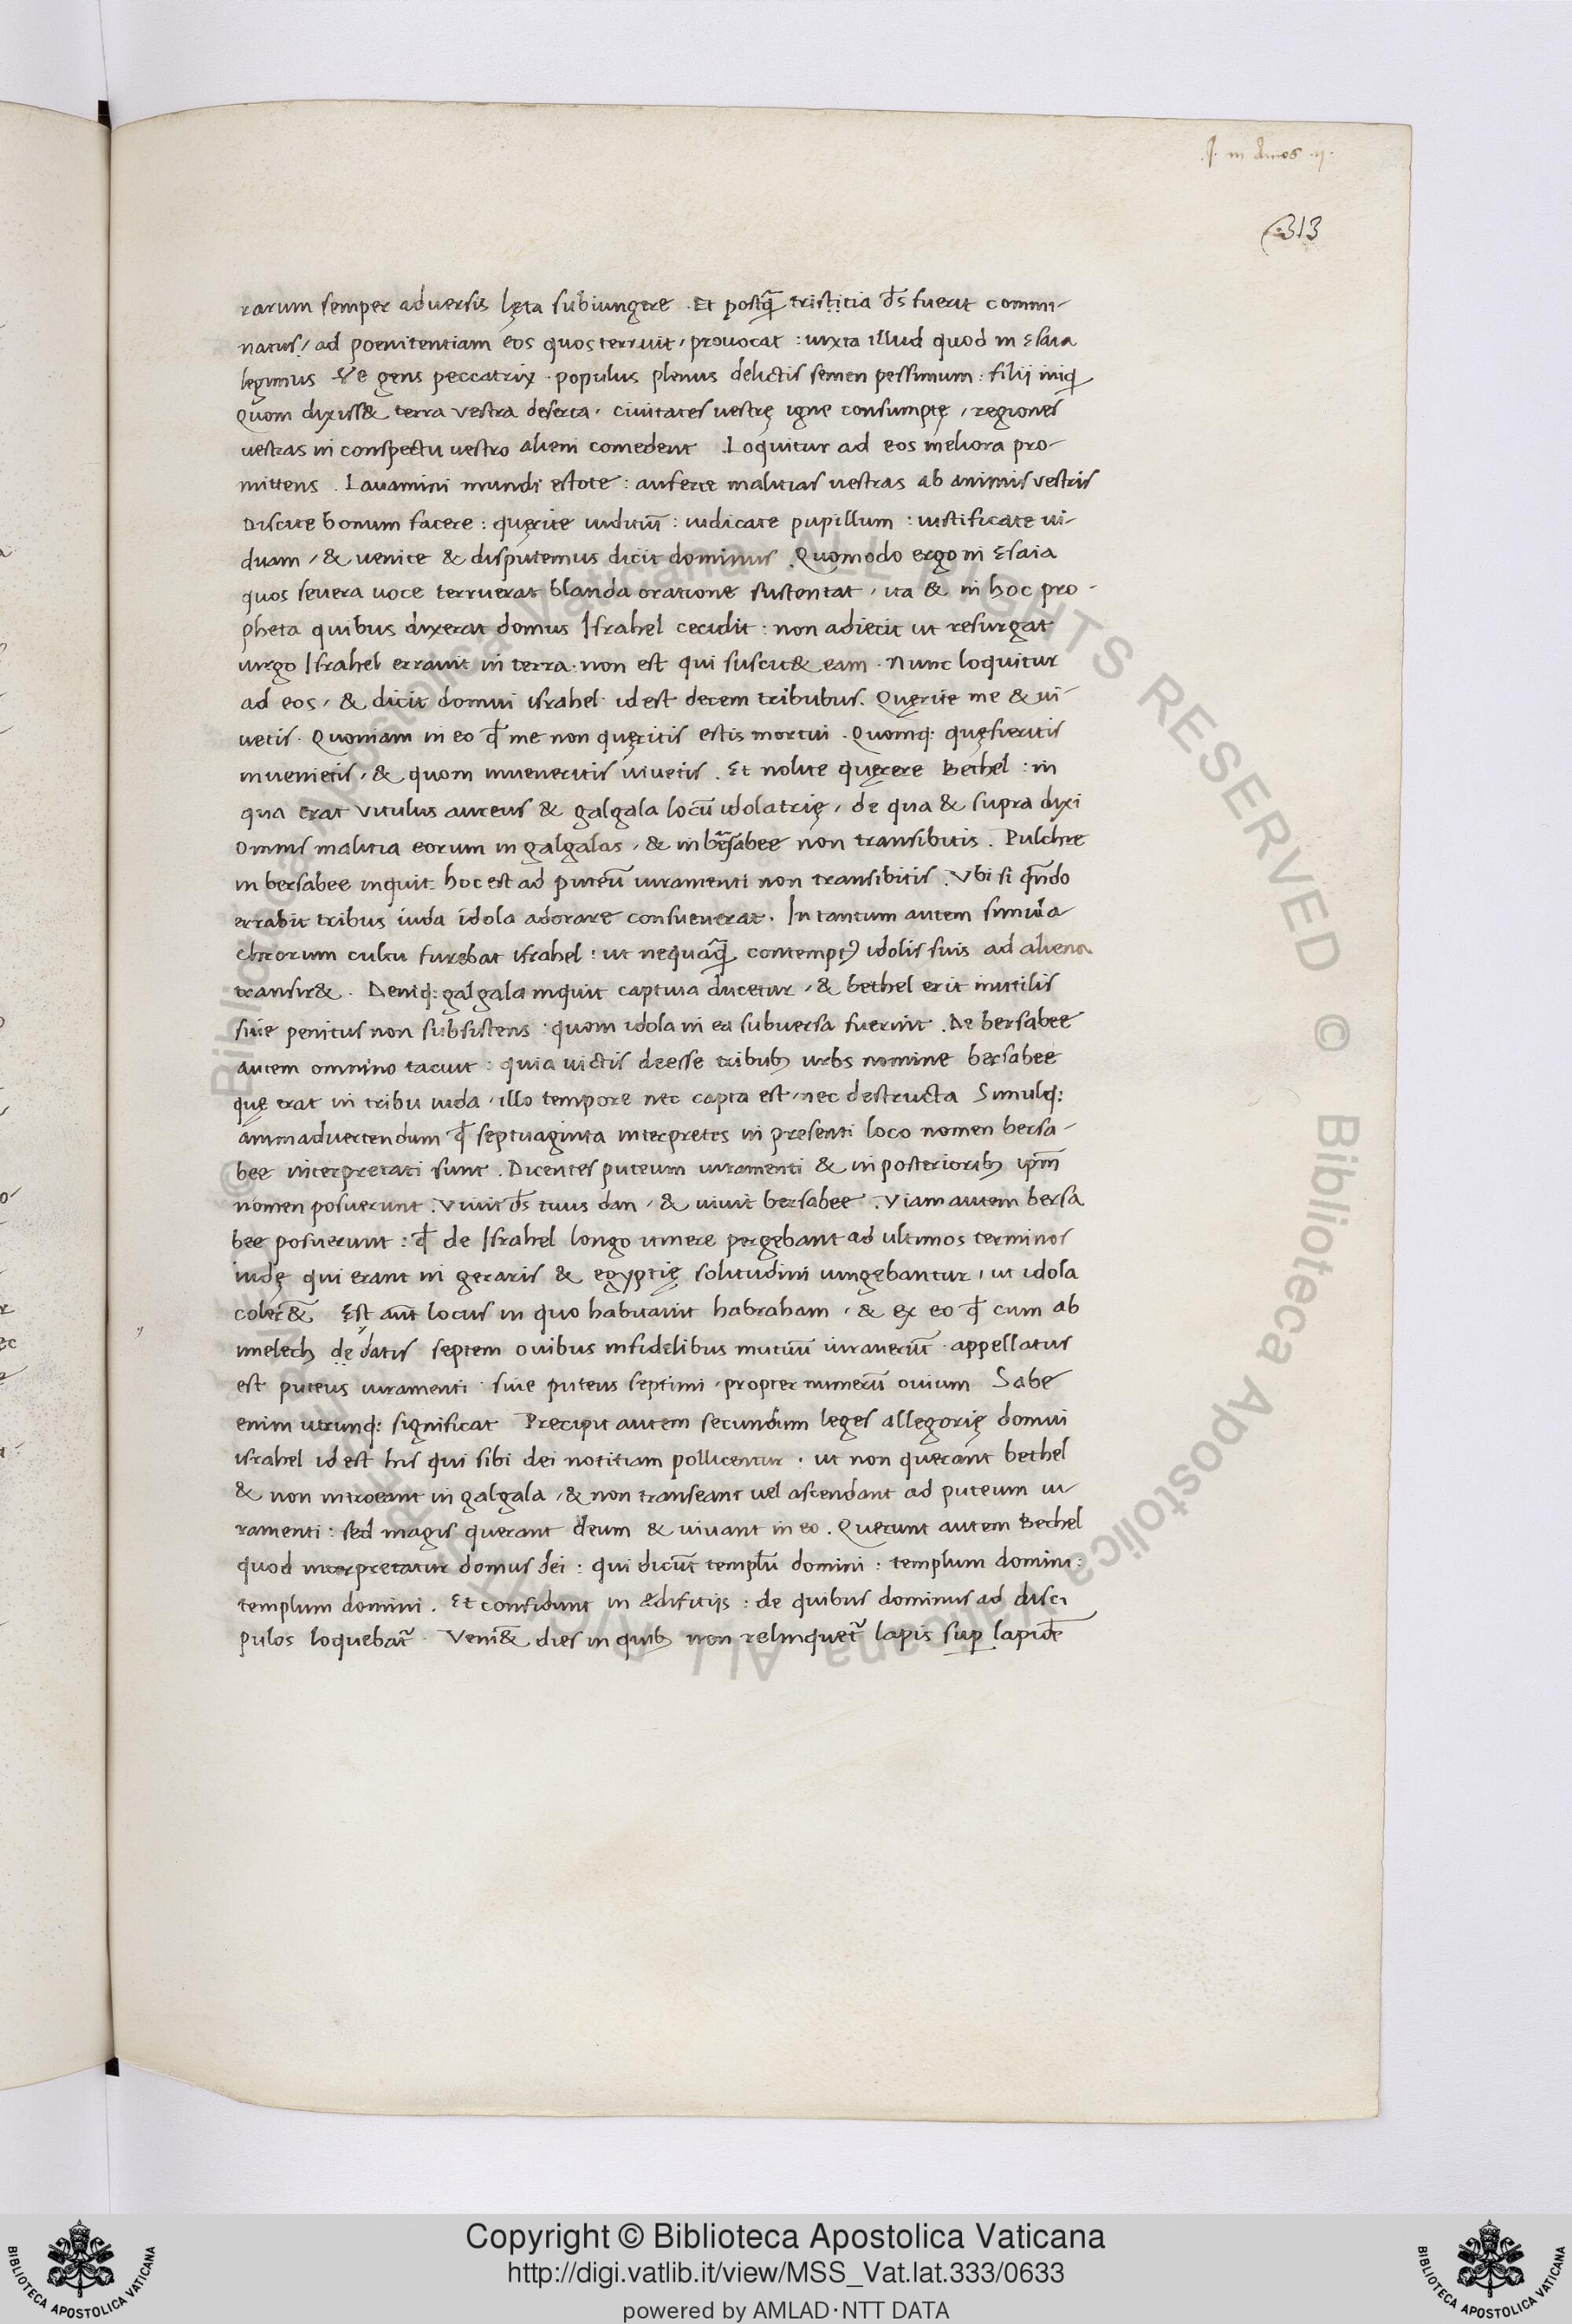 J. in Amos .ij.
313
rarum semper adversis lęta subiungere . Et postq̃ tristitia d̄s fuerit commi-
natus, ad poenitentiam eos quos terruit, provocat : iuxta illud quod in Esaia
legimus Ve gens peccatrix . populus plenus delictis semen pessimum : filii iniq̣
Quom dixiss& terra vestra deserta, civitates vestrę igne consumptę, regiones
vestras in conspectu vestro alieni comedent . Loquitur ad eos meliora pro-
mittens . Lavamini mundi estote : auferte malitias vestras ab animis vestris
Discite bonum facere : quęrite iuditiū : iudicate pupillum : iustificate vi-
duam, & venite & disputemus dicit dominus . Quomodo ergo in Esaia
quos severa voce terruerat blanda oratione sustentat, ita & in hoc pro-
pheta quibus dixerat domus Israhel cecidit : non adiecit ut resurgat
virgo Israhel erravit in terra . non est qui suscit& eam . Nunc loquitur
ad eos, & dicit domui israhel id est decem tribubus. Quęrite me & vi-
vetis . Quoniam in eo q̄ me non quęritis estis mortui . Quomq: quęsieritis
invenietis, & quom inveneritis vivetis . Et nolite quęrere Bethel : in
qua erat vitulus aureus & galgala locū idolatrię, de qua & supra dixi
omnis malitia eorum in galgalas, & in bersabee non transibitis . Pulchre
in bersabee inquit . hoc est ad puteū iuramenti non transibitis . Ubi si qn̄do
errabit tribus iuda idola adorare consueverat . In tantum autem simula
chrorum cultu furebat israhel : ut nequaq̃ contemptꝰ idolis suis ad aliena
transir& . Deniq: galgala inquit captiva ducetur, & bethel erit inutilis
sive penitus non subsistens : quom idola in ea subversa fuerint . De bersabee
autem omnino tacuit : quia victis deesse tribubꝫ urbs nomine bersabee
quę erat in tribu iuda, illo tempore nec capta est, nec destructa Simulq:
animadvertendum q̄ septuaginta interpretes in presenti loco nomen bersa-
bee interpretati sunt . Dicentes puteum iuramenti & in posterioribꝫ ip̄m
nomen posuerunt . Vivit d̄s tuus dan, & vivit bersabee . Viam autem bersa
bee posuerunt : q̄ de Israhel longo itinere pergebant ad ultimos terminos
iudę qui erant in geraris & egyptię solitudini iungebantur, ut idola
coler&̄ Est aūt locus in quo habitavit habraham, & ex eo q̄ cum ab
imelech dę datis septem ovibus infidelibus mutuū iuraverūt . appellatus
est puteus iuramenti sive puteus septimi, propter numerū ovium Sabe
enim utrunq: significat Precipit autem secundum leges allegorię domui
israhel id est his qui sibi dei notitiam pollicentur . ut non querant bethel
& non introeant in galgala, & non transeant vel ascendant ad puteum iu-
ramenti : sed magis querant deum & vivant in eo . Querunt autem Bethel
quod interpretatur domus dei : qui dicūt templū domini : templum domini :
templum domini . Et confidunt in ædifitiis : de quibus dominus ad disci
pulos loquebat᷑ . Veni&̄ dies in quibꝫ non relinquet᷑ lapis suꝑ lapidē
Copyright © Biblioteca Apostolica Vaticana
http://digi.vatlib.it/view/MSS_Vat.lat.333/0633
powered by AMLAD·NTT DATA